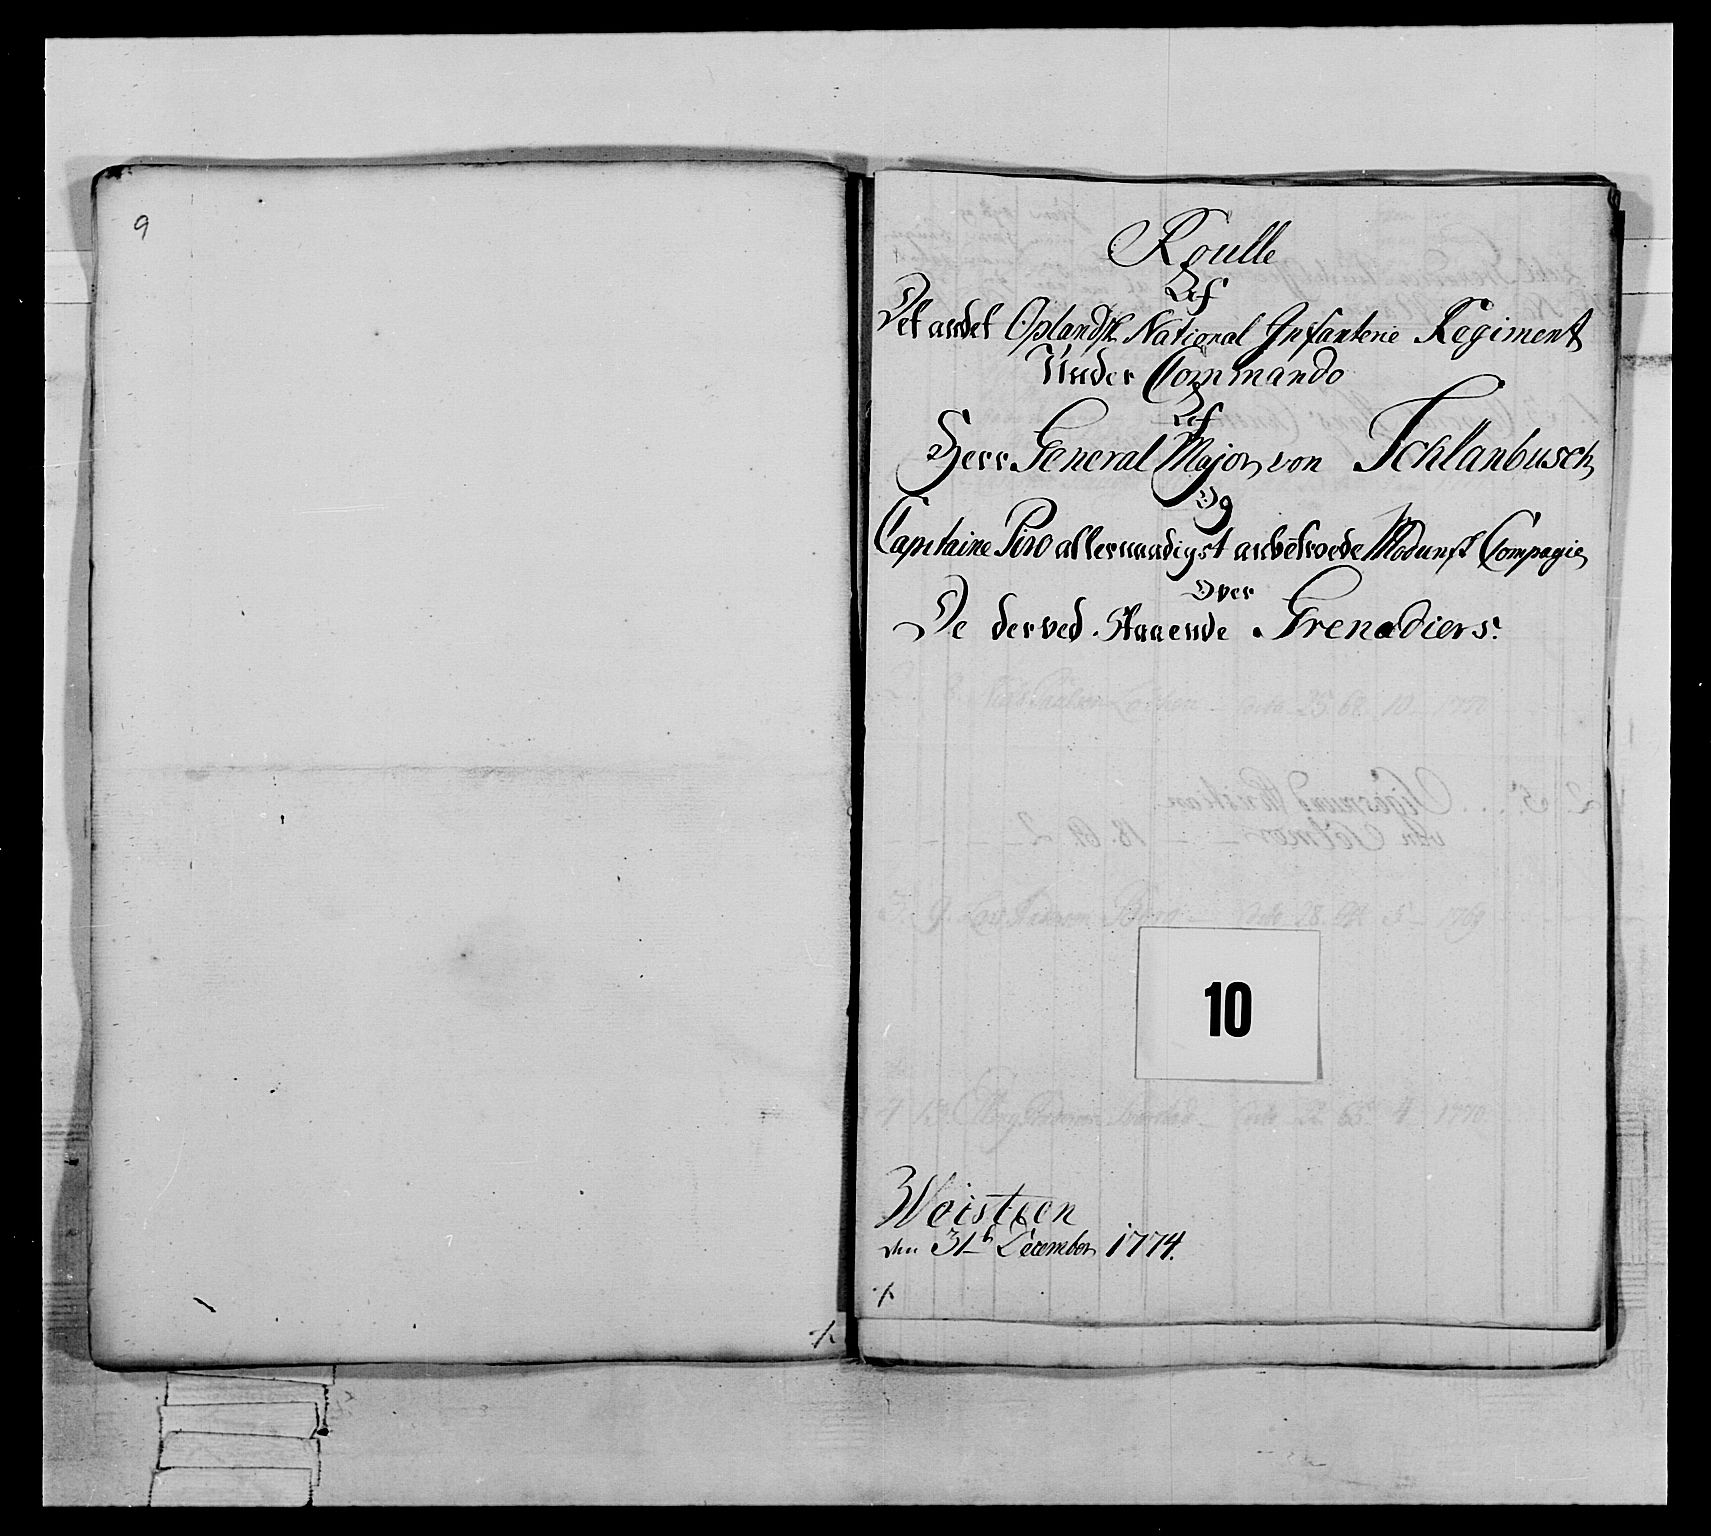 9
Roulle
Af
Det andet Oplandsk National Infanterie Regiment
Under Commando
Af
Herr General Major von Schlanbusch
Og
Capitaine Piro allernaadigst anbetroede Modumsk Compagie
Over
De derved staaende Grenadiers.
10
den 31te December 1774.